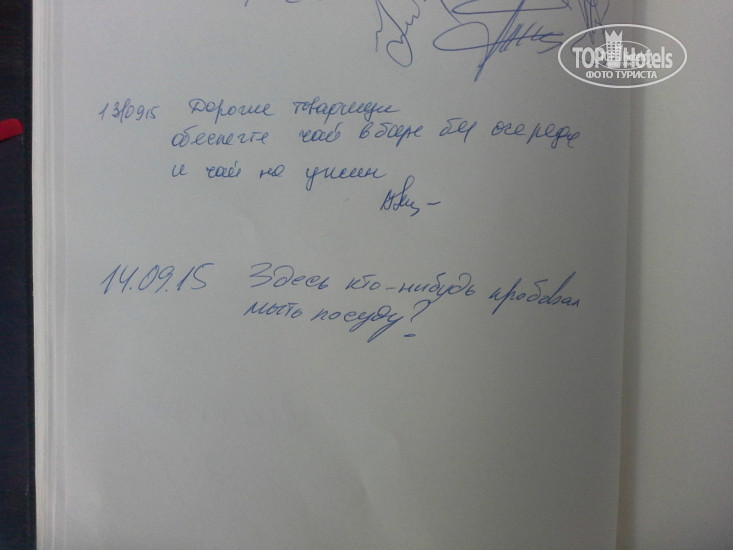 TOPHotels
ФОТО ТУРИСТА
13/09.15 Дорогие товарищи
обеспечте чай в баре без очереде
и чай на ужин
14.09.15 Здесь кто-нибудь пробовал
мыть посуду?